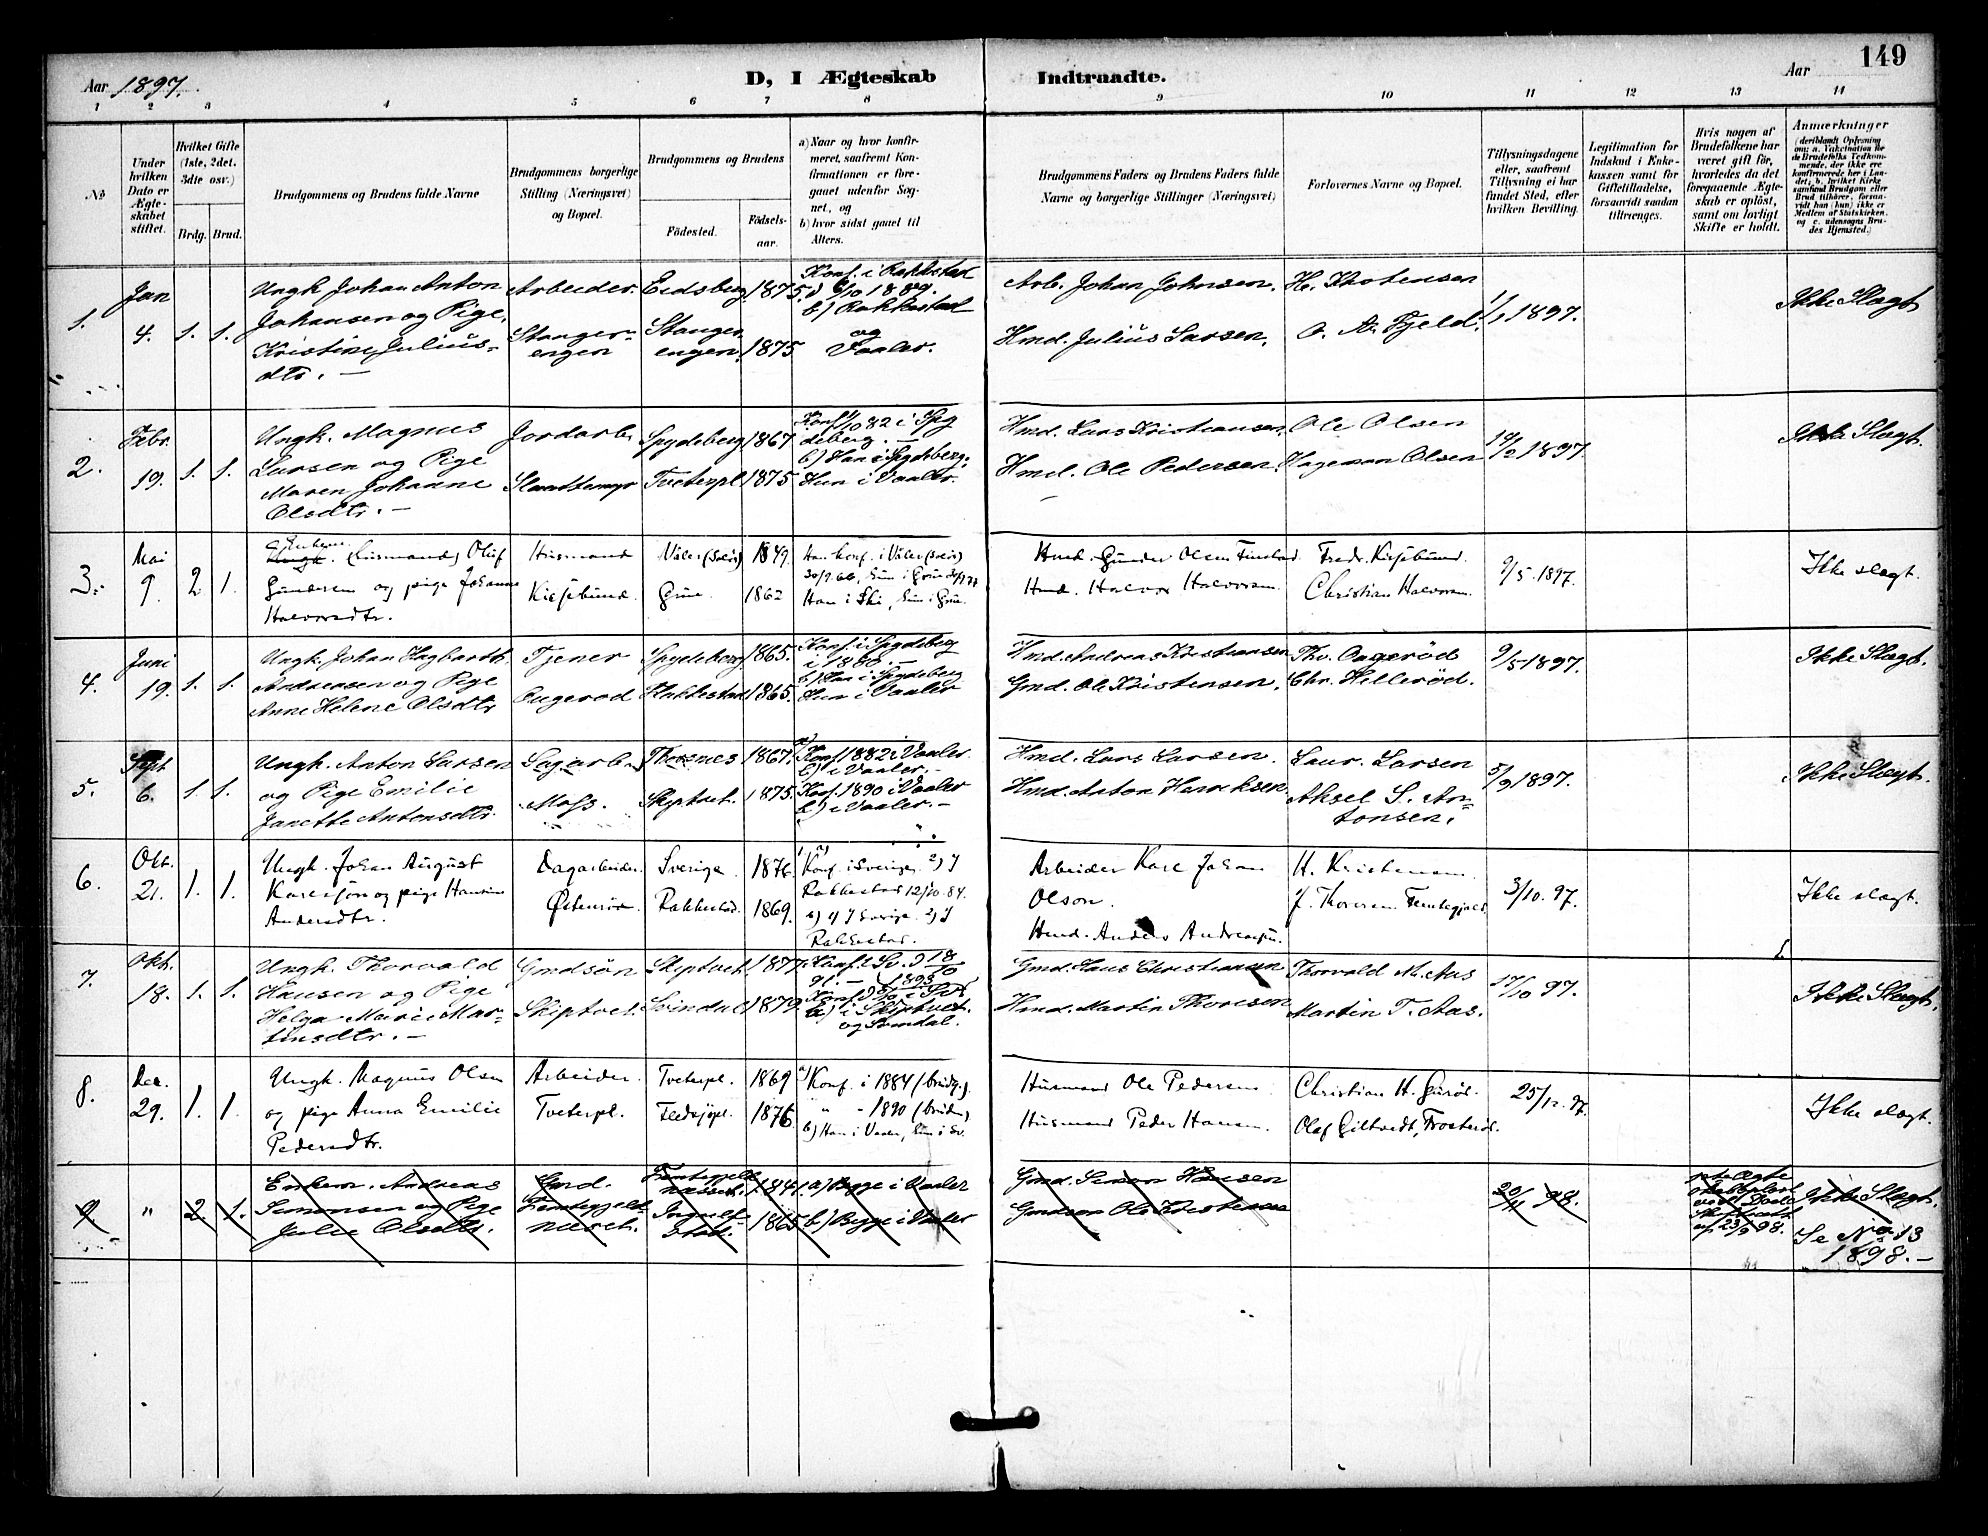 149
Aar 1897.
D, I Ægteskab Indtraadte.
Aar
1 2 3 4 5 6 7 8 9 10 11 12 13 14
No
Under hvilken Dato er Ægteskabet stiftet.
Hvilket Gifte (1ste, 2det, 3die osv.)
Brdg. Brud.
Brudgommens og Brudens fulde Navne
Brudgommens borgerlige Stilling (Næringsvei) og Bopæl.
Brudgommens og Brudens
Fødested.
Fødselsaar.
a) Naar og hvor konfirmeret, saafremt Konfirmationen er foregaaet udenfor Sognet, og
b) hvor sidst gaaet til Alters.
Brudgommens Faders og Brudens Faders fulde Navne og borgerlige Stillinger (Næringsvei)
Forlovernes Navne og Bopæl.
Tillysningsdagene eller, saafremt Tillysning ei har fundet Sted, efter hvilken Bevilling.
Legitimation for Indskud i Enkekassen samt for Giftetilladelse, forsaavidt saadan tiltrænges.
Hvis nogen af Brudefolkene har været gift før, hvorledes da det foregaaende Ægteskab er opløst, samt om lovligt Skifte er holdt.
Anmærkninger
(deriblandt Oplysning om: a. Vakcination for de Brudefolks Vedkommende, der ikke ere konfirmerede her i Landet; b. hvilket Kirkesamfund Brudgom eller Brud tilhører, forsaavidt han (hun) ikke er Medlem af Statskirken, og c. udensogns Brudes Hjemsted.)
1. Jan 4. 1. 1.
Ungk. Johan Anton
Johansen og Pige,
Kristine Julius-
dtr. —
Arbeider.
Stangerengen
Eidsberg 1875.
Stangerengen. 1875
Konf. i Rakkestad
6/10 1889.
b) Rakkestad
og
Vaaler.
Arb. Johan Johnsen.
Hmd. Julius Larsen.
O. A. Fjeld.
1/1 1897.
Ikke Slægt
2. Febr. 19. 1. 1.
Ungk. Magnus
Larsen og Pige
Maren Johanne
Olsdtr. —
Jordarb.
Spydeberg 1867
Tveterpl. 1875
Konf. 1/10 82 i Spydeberg. —
b) Han i Spydeberg.
Hun i Vaaler.
Hmd. Lars Kristiansen.
Hmd. Ole Pedersen
Ole Olsen
Hageman Olsen
14/2 1897
Ikke Slægt.
3. Mai 9. 2 1.
Enkem. (Husmand) Oluf
Gundersen og pige Johanne
Halvorsdtr.
Husmand
Kirsebund.
Våler (Solør) 1849.
Grue 1862
Han konf. i Våler (Solør)
30/9 66, Hun i Grue
Han i Ski, Hun i Grue.
Husd. Gunder Olsen Finstad
Husd. Halvor Halvorsen.
Fredr. Kirsebund.
Christian Halvorsen.
9/5 1897.
Ikke slægt.
4. Juni 19. 1. 1.
Ungk. Johan Hagbarth
Andreasen og Pige
Anne Helene Olsdtr
Tjener
Augerød
Spydeberg 1865.
Rakkestad 1865.
Konf. i Spydeberg
i 1880. —
b) Han i Spydeberg
Hun i Vaaler
Hmd. Andreas Kristiansen
Gmd. Ole Kristensen.
Tho. Augerød
Chr. Hellerød.
9/5 1897.
Ikke Slægt.
5. Sept 6. 1. 1.
Ungk. Anton Larsen
og Pige Emilie
Janette Antonsdtr.
Sagarb.
Moss.
Thorsnes 1867.
Skiptvet. 1875.
Konf. 1882 i Vaaler.
b) i Vaaler. —
Konf. 1890 i Vaaler
b) i Vaaler. —
Hmd. Lars Larsen.
Hmd. Anton Henriksen
Laur. Larsen
Aksel S. Antonsen.
5/9 1897.
Ikke Slægt.
6. Okt. 21. 1. 1.
Ungk. Johan August
Karlsson og pige Hansine
Andersdtr.
Dagarbeider.
Østenrød.
Sverige 1876.
Rakkestad. 1869.
a)
Konf. i Sverige. 2) I
Rakkestad 12/10. 84.
b) 1) I Sverige. 2) I
Rakkestad.
Arbeider Karl Johan
Olson.
Husd. Anders Andreassen.
H. Kristensen.
3/10. 97.
Ikke slægt.
7. Okt. 18. 1. 1.
Ungk. Thorvald
Hansen og Pige
Helga Marie Mar-
tinsdtr. —
Gmdsøn
Skiptvet.
Skiptvet 1877.
Svindal 1879.
b) i Skiptvet.
og Svindal.
Gmd. Hans Christiansen
Hmd. Martin Thoresen
Thorvald M. Aas
Martin T. Aas.
17/10 97.
Ikke Slægt.
8. Dec. 29. 1. 1.
Ungk. Magnus Olsen
og pige Anna Emilie
Pedersdtr.
Arbeider.
Tveterpl.
Tveterpl. 1869
Fledsjøpl. 1876
a) Konf. i 1884 (brudg.)
" " 1890 (bruden)
b) Han i Vaaler, Hun i Sv.
Husmand Ole Pedersen
Husmand Peder Hansen.
Christian H. Gurød.
Olaf Giltvedt, Frosterød.
25/12. 97.
Ikke slægt.
9 " 2 1.
Enkem. Andreas
Simonsen og Pige
Julie Olsdtr.
Gmd.
1841.
1865
a) Begge i Vaaler
b) Begge i Vaaler
Gmd. Simon Hansen
Gmdsøn Ole Kristiansen
20/11 98.
Ikke Slægt.
Se No 13
1898. —